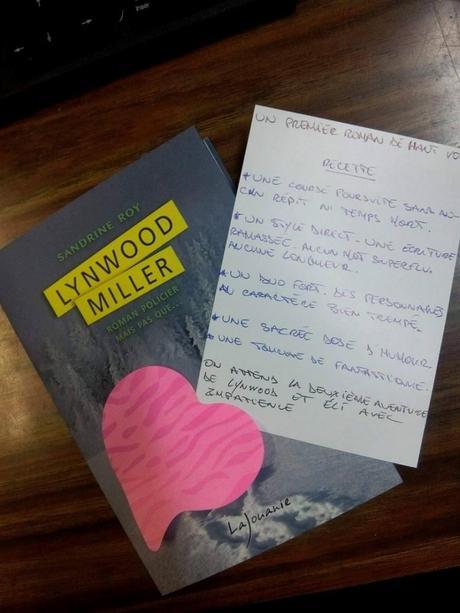 SANDRINE ROY
LYNWOOD
MILLER
ROMAN POLICIER
MAIS PAS QUE...
LaJouanie
UN PREMIER ROMAN DE HAUT
RECETTE
* UNE COURSE POURSUITE SANS AU-
CUN RÉPIT NI TEMPS MORT.
* UN STYLE DIRECT. UNE ÉCRITURE
RAMASSÉE. AUCUN MOT SUPERFLU.
AUCUNE LONGUEUR.
* UN DUO FORT. DES PERSONNAGES
AU CARACTÈRE BIEN TREMPÉ.
* UNE SACRÉE DOSE D'HUMOUR
* UNE TOUCHE DE FANTASTIQUE.
ON ATTEND LA DEUXIÈME AVENTURE
DE LYNWOOD ET ELI AVEC
IMPATIENCE